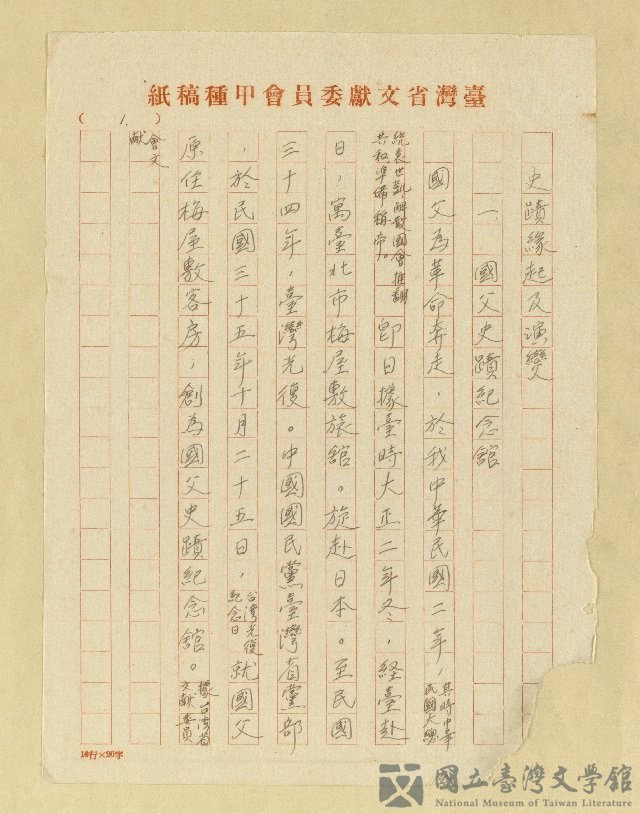 紙稿種甲會員委獻文省灣臺
( 1. )
史蹟緣起及演變
一、國父史蹟紀念館
國父為革命奔走，於我中華民國二年，其時中華民國大總
統袁世凱解散國會推翻共和準備稱帝。即日據臺時大正二年冬，経臺赴
日，寓臺北市梅屋敷旅館。旋赴日本。至民國
三十四年，臺灣光復。中國國民黨臺灣省黨部
，於民國三十五年十月二十五日，台灣光復紀念日就國父
原住梅屋敷客房，創為國父史蹟紀念舘。據台灣省文獻委員
會文獻
10行×20字
國立臺灣文學館
National Museum of Taiwan Literature